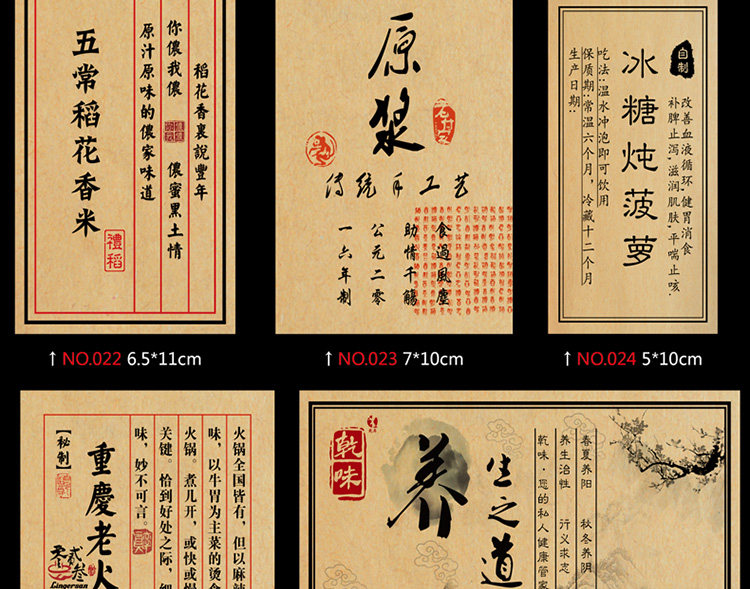 稻花香裏說豐年
你儂我儂 儂蜜黑土情
原汁原味的儂家味道
五常稻花香米
禮稻
↑NO.022 6.5*11cm
原漿
传统手工艺
食過風塵
助情千觴
公元二零
一六年制
↑NO.023 7*10cm
自制
改善血液循环,健胃消食
补脾止泻,滋润肌肤,平喘止咳.
冰糖炖菠萝
吃法:温水冲泡即可饮用
保质期:常温六个月,冷藏十二个月
生产日期:
↑NO.024 5*10cm
火锅全国皆有,但以麻辣
味,以牛胃为主菜的烫食
火锅。煮几开,或快或慢
关键。恰到好处之际,细
味,妙不可言。
重慶老火
【秘制】
零贰叁
Lingersan
春夏养阳 秋冬养阴
养生治性 行义求志
乾味·您的私人健康管家
养生之道
乾味